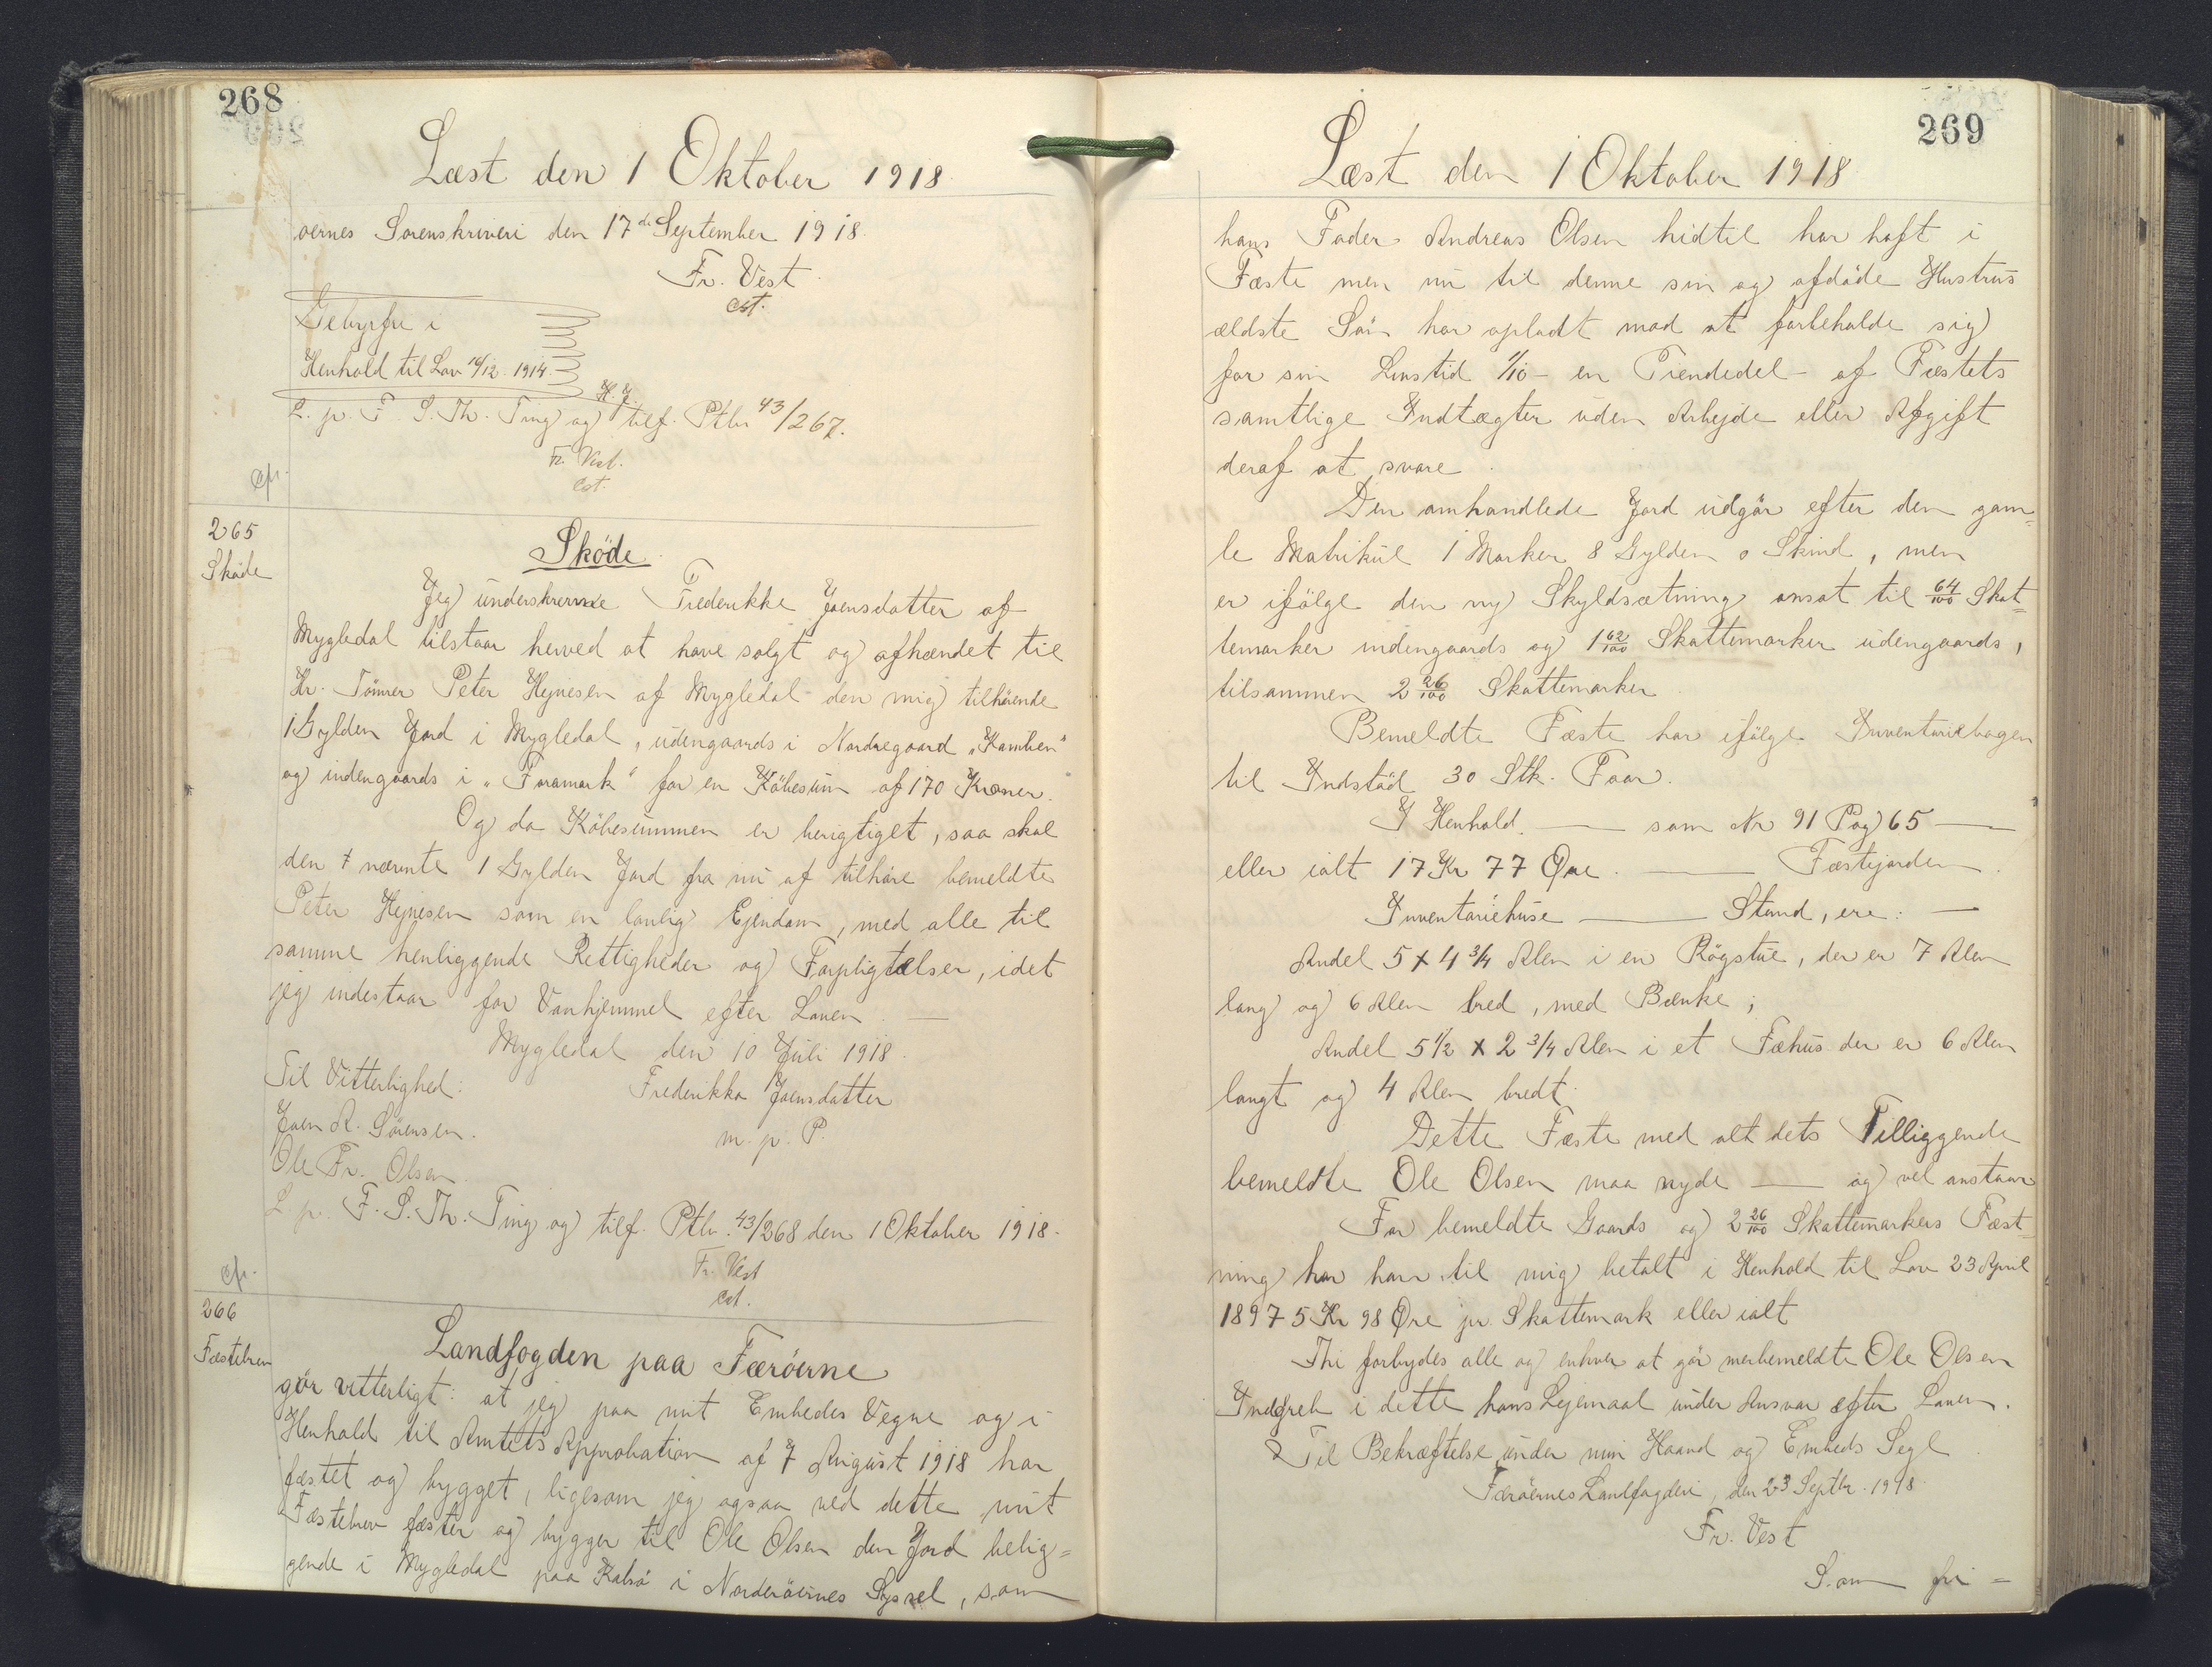 268
Læst den 1 Oktober 1918
øernes Sorenskriveri den 17de September 1918.
Fr. Vest
cst.
Gebyrfri i
Henhold til Lov 16/12 1914.
L. p. F. S. Th. Ting og tilf. Ptbr 43/267.
Fr. Vest.
cst.
265
Sköde
Sköde
Jeg underskrevne Frederikke Joensdatter af
Mygledal tilstaar herved at have solgt og afhændet til
Hr. Tömrer Peter Hejnesen af Mygledal den mig tilhörende
1 Gylden Jord i Mygledal, udengaards i Nordregaard „Kamben"
og indengaards i „Foramark" for en Köbesum af 170 Kroner.
Og da Köbesummen er berigtiget, saa skal
den nævnte 1 Gylden Jord fra nu af tilhöre bemeldte
Peter Hejnesen som en lovlig Ejendom, med alle til
samme henliggende Rettigheder og Forpligtelser, idet
jeg indestaar for Vanhjemmel efter Loven.
Mygledal den 10 Juli 1918.
Til Vitterlighed:
Frederikka Joensdatter
Joen R. Sörensen.
m. p. P.
Ole Fr. Olsen.
L. p. F. S. Th. Ting og tilf. Ptbr. 43/268 den 1 Oktober 1918.
Fr. Vest
cst.
266
Fæstebrev
Landfogden paa Færöerne
gör vitterligt: at jeg paa mit Embedes Vegne og i
Henhold til Amtets Approbation af 7 August 1918 har
fæstet og bygget, ligesom jeg ogsaa ved dette mit
Fæstebrev fæster og bygger til Ole Olsen den Jord belig=
gende i Mygledal paa Kalsö i Norderöernes Syssel, som
269
Læst den 1 Oktober 1918
hans Fader Andreas Olsen hidtil har haft i
Fæste men nu til denne sin og afdöde Hustrus
ældste Sön har opladt mod at forbeholde sig
for sin Livstid 1/10 - en Tiendedel - af Fæstets
samtlige Indtægter uden Arbejde eller Afgift
deraf at svare.
Den omhandlede Jord udgör efter den gam=
le Matrikul 1 Marker 8 Gylden 0 Skind, men
er ifölge den ny Skyldsætning ansat til 64/100 Skat=
temarker indengaards og 1 62/100 Skattemarker udengaards,
tilsammen 2 26/100 Skattemarker.
Bemeldte Fæste har ifölge Inventariebogen
til Indstöd 30 Stk. Faar.
I Henhold. —— som Nr 91 Pag 65 ——
eller ialt 17 Kr 77 Øre. —— Fæstejorden.
Inventariehuse —— Stand, ere: —
Andel 5 x 4 3/4 Alen i en Rögstue, der er 7 Alen
lang og 6 Alen bred, med Bænke;
Andel 5 1/2 x 2 3/4 Alen i et Fæhus der er 6 Alen
langt og 4 Alen bredt.
Dette Fæste med alt dets Tilliggende
bemeldte Ole Olsen maa nyde —— og vel anstaar
For bemeldte Gaards og 2 26/100 Skattemarkers Fæst=
ning har han til mig betalt i Henhold til Lov 23 April
1897 5 Kr 98 Øre pr. Skattemark eller ialt
Thi forbydes alle og enhver at gör merbemeldte Ole Olsen
Indgreb i dette hans Lejemaal under Ansvar efter Loven.
Til Bekræftelse under min Haand og Embeds Segl
Færöernes Landfogderi, den 23 Septbr. 1918
Fr. Vest
Som fri=